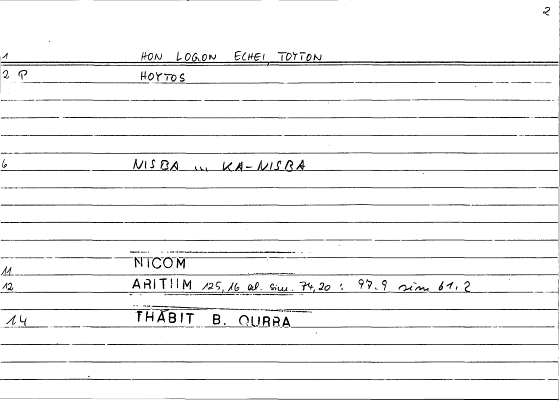 2
1 HON LOGON ECHEI, TOYTON
2 P HOYTOS
6 NISBA ... KA-NISBA
11 NICOM
12 ARITIIM 125,16 al. sim. 74,20 : 97.9 sim 61.2
14 THĀBIT B. QURRA